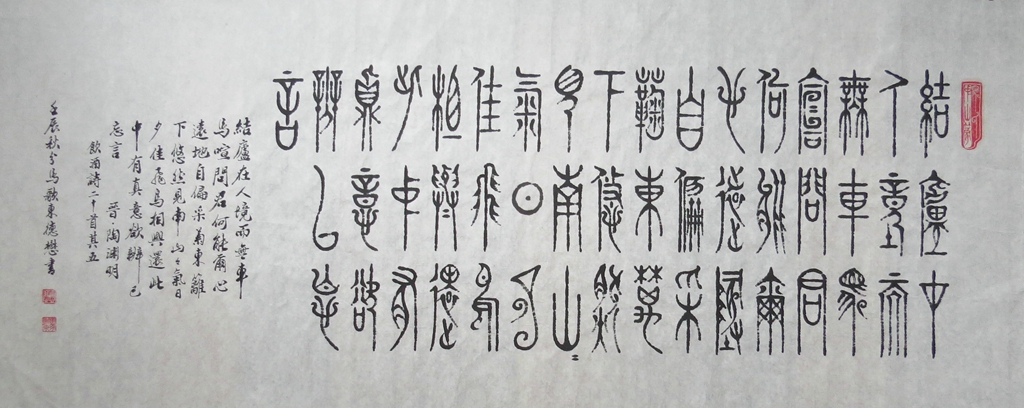 結廬在
人境而
無車馬
喧問君
何能爾
心遠地
自偏采
菊東籬
下悠然
見南山〻
氣日夕
佳飛鳥
相與還
此中有
真意欲
辨已忘
言
結廬在人境而無車
馬喧問君何能爾心
遠地自偏采菊東籬
下悠然見南山〻氣日
夕佳飛鳥相與還此
中有真意欲辨已
忘言 晉陶淵明
飲酒詩二十首其五
壬辰秋分馬歌東德懋書